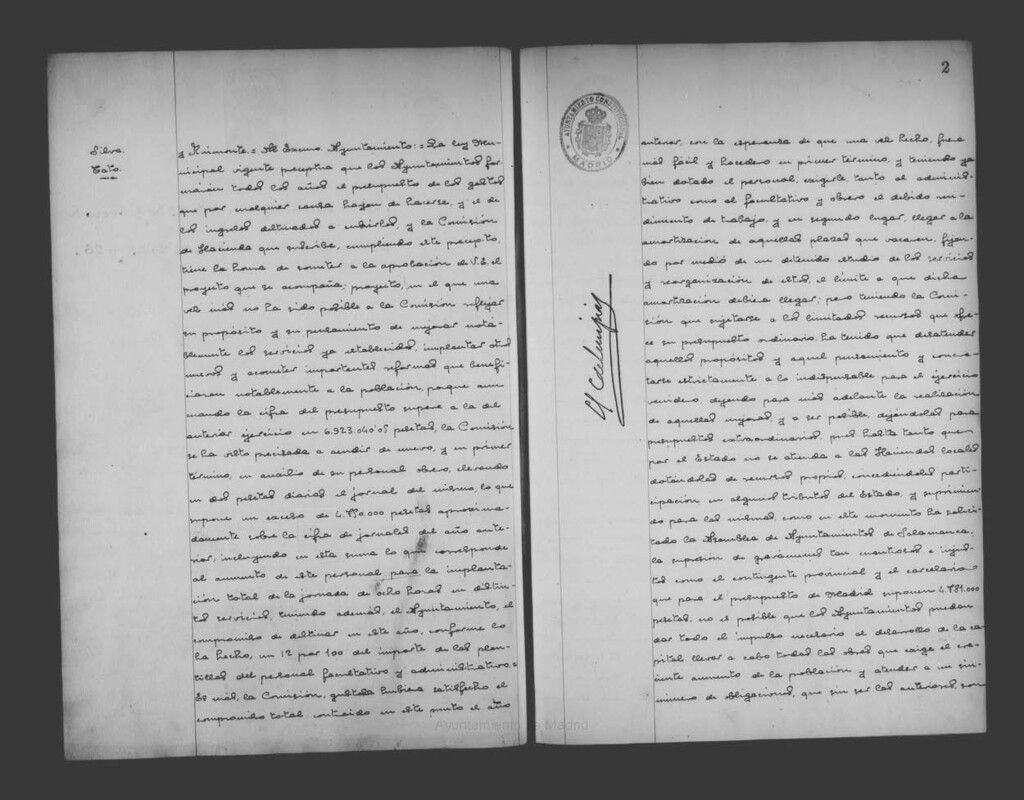 Silva
Cato.
y Ruimonte.= Al Excmo. Ayuntamiento:= La ley Mu-
nicipal vigente preceptua que los Ayuntamientos for-
marán todos los años el presupuesto de los gastos
que por cualquier causa hayan de hacerse, y el de
los ingresos destinados a cubrirlos, y la Comisión
de Hacienda que suscribe, cumpliendo este precepto,
tiene la honra de someter a la aprobación de V.E. el
proyecto que se acompaña; proyecto, en el que una
vez más no ha sido posible a la Comisión reflejar
su propósito y su pensamiento de mejorar nota-
blemente los servicios ya establecidos, implantar otros
nuevos y acometer importantes reformas que benefi-
ciaran notablemente a la población, porque aun
cuando la cifra del presupuesto supera a la del
anterior ejercicio en 6.923.040'05 pesetas, la Comisión
se ha visto precisada a acudir de nuevo, y en primer
término, en auxilio de su personal obrero, elevando
en dos pesetas diarias el jornal del mismo, lo que
supone un exceso de 4.750.000 pesetas aproxima-
damente sobre la cifra de jornales del año ante-
rior, incluyendo en esta suma lo que corresponde
al aumento de este personal para la implanta-
ción total de la jornada de ocho horas en distin-
tos servicios, teniendo además, el Ayuntamiento, el
compromiso de destinar en este año, conforme lo
ha hecho, un 12 por 100 del importe de las plan-
tillas del personal facultativo y administrativo.=
Es más, la Comisión, gustosa hubiera satisfecho el
compromiso total contraido en este punto el año
2
AYUNTAMIENTO CONSTITUCIONAL
MADRID
anterior, con la esperanza de que una vez hecho, fuera
más fácil y hacedero en primer término, y teniendo ya
bien dotado el personal, exigirle, tanto al adminis-
trativo como al facultativo y obrero el debido ren-
dimiento de trabajo, y en segundo lugar, llegar a la
amortización de aquellas plazas que vacaren, fijan-
do por medio de un detenido estudio de los servicios
y reorganización de éstos, el límite a que dicha
amortización debiera llegar; pero teniendo la Comi-
sión que sujetarse a los limitados recursos que ofre-
ce su presupuesto ordinario, ha tenido que desatender
aquellos propósitos y aquel pensamiento y concre-
tarse estrictamente a lo indispensable para el ejercicio
venidero, dejando para más adelante la realización
de aquellas mejoras, y a ser posible, dejándolas para
presupuestos extraordinarios, pues hasta tanto que
por el Estado no se atienda a las Haciendas locales
dotándolas de recursos propios, concediéndolas parti-
cipación en algunos tributos del Estado, y suprimien-
do para las mismas, como en este momento ha solici-
tado la Asamblea de Ayuntamientos de Salamanca,
la supresión de gravámenes tan cuantiosos e injus-
tos como el contingente provincial y el carcelario
que para el presupuesto de Madrid suponen 4.781.000
pesetas, no es posible que los Ayuntamientos puedan
dar todo el impulso necesario al desarrollo de la ca-
pital, llevar a cabo todas las obras que exige el cre-
ciente aumento de la población y atender a un sin-
número de obligaciones, que sin ser las anteriores son
Ayuntamiento de Madrid